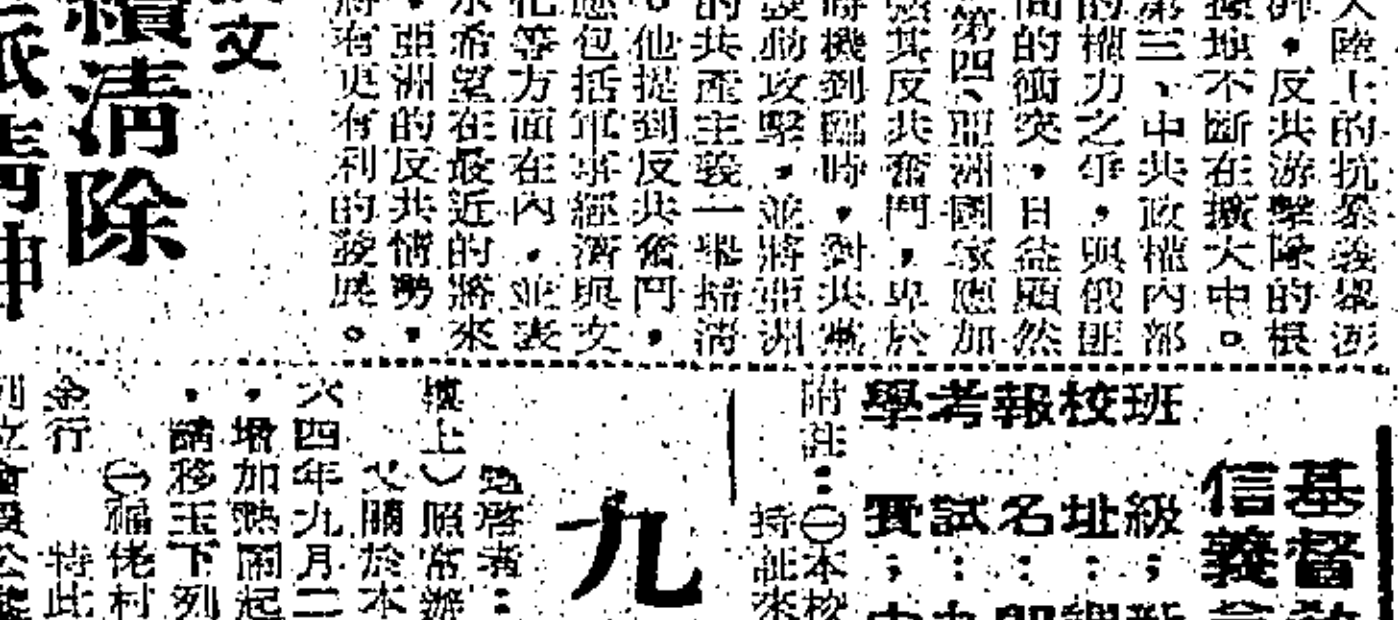 大陸上的抗暴義舉澎
湃，反共游擊隊的根
據地不斷在擴大中。
第三、中共政權內部
的權力之爭，與俄匪
間的衝突，日益顯然
。第四、亞洲國家應加
強其反共奮鬥，卑於
時機到臨時，對共黨
發動攻擊，並將亞洲
的共產主義一舉掃清
。他提到反共奮鬥，
應包括軍事經濟與文
化等方面在內，並表
示希望在最近的將來
，亞洲的反共情勢，
將有更有利的發展。
文
續清除
派精神
基督教
信義會
班級：新
校址：
報名：即
考試：九
學費：
附註：㈠本校
持証來
九
逕啓者：
樓上）照常辦
關於本
六四年九月二
，增加熱鬧起
，請移玉下列
㈠福佬村
金行
特此
列位會員公鑒